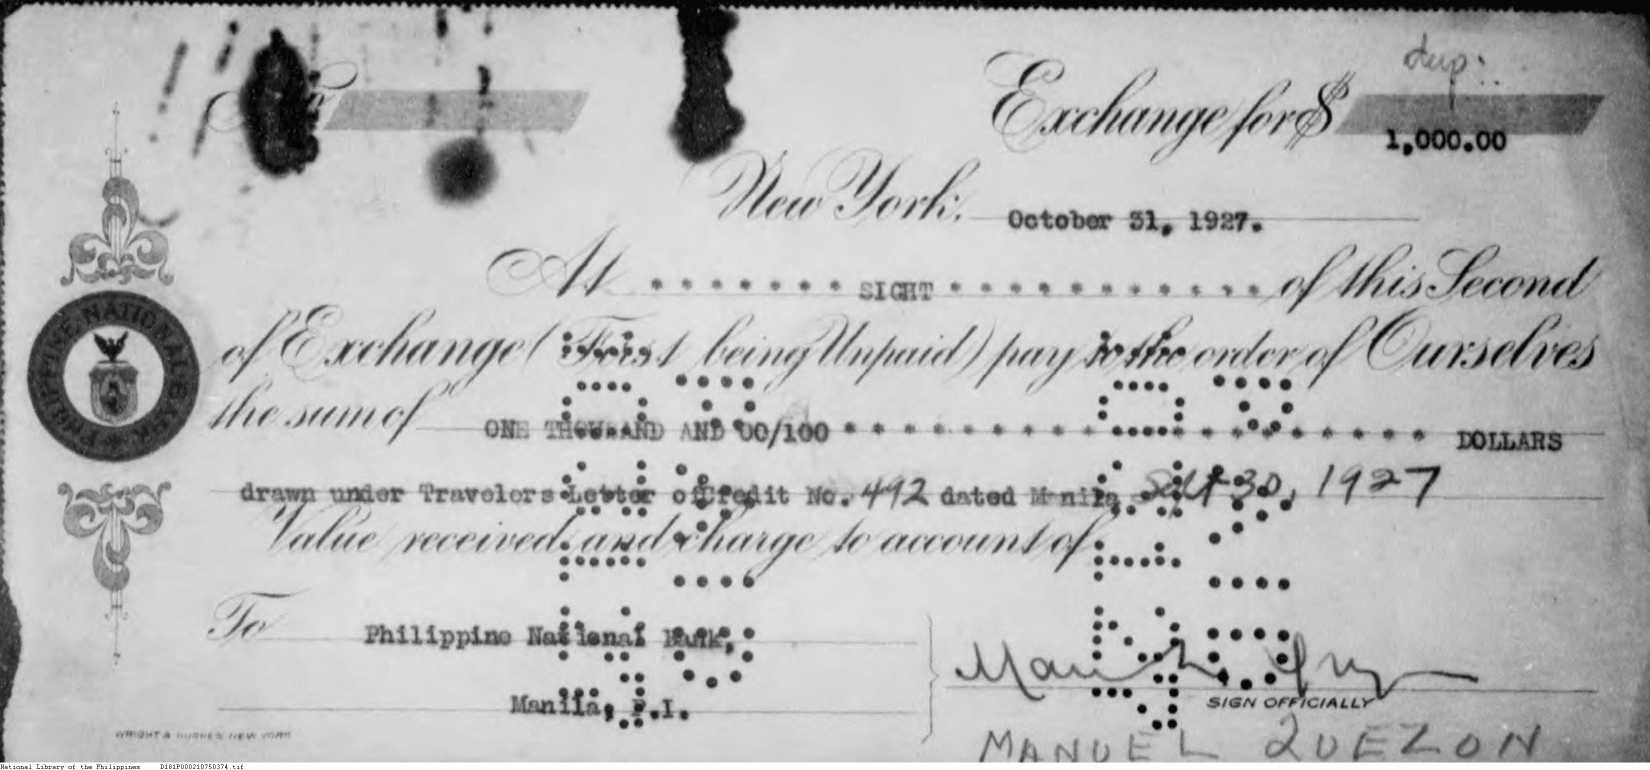 dup:
Exchange for $ 1,000.00
New York, October 31, 1927.
At * * * * * * * SIGHT * * * * * * * * * * * of this Second
of Exchange (First being Unpaid) pay to the order of Ourselves
the sum of ONE THOUSAND AND 00/100 * * * * * * * * * * * * * * * * * * * * DOLLARS
drawn under Travelers Letter of Credit No. 492 dated Manila Sept 30, 1927
Value received and charge to account of
To Philippine National Bank,
Manila, P.I.
SIGN OFFICIALLY
MANUEL QUEZON
PHILIPPINE NATIONAL BANK
WRIGHT & HUGHES NEW YORK
National Library of the Philippines D181P000210750374.tif